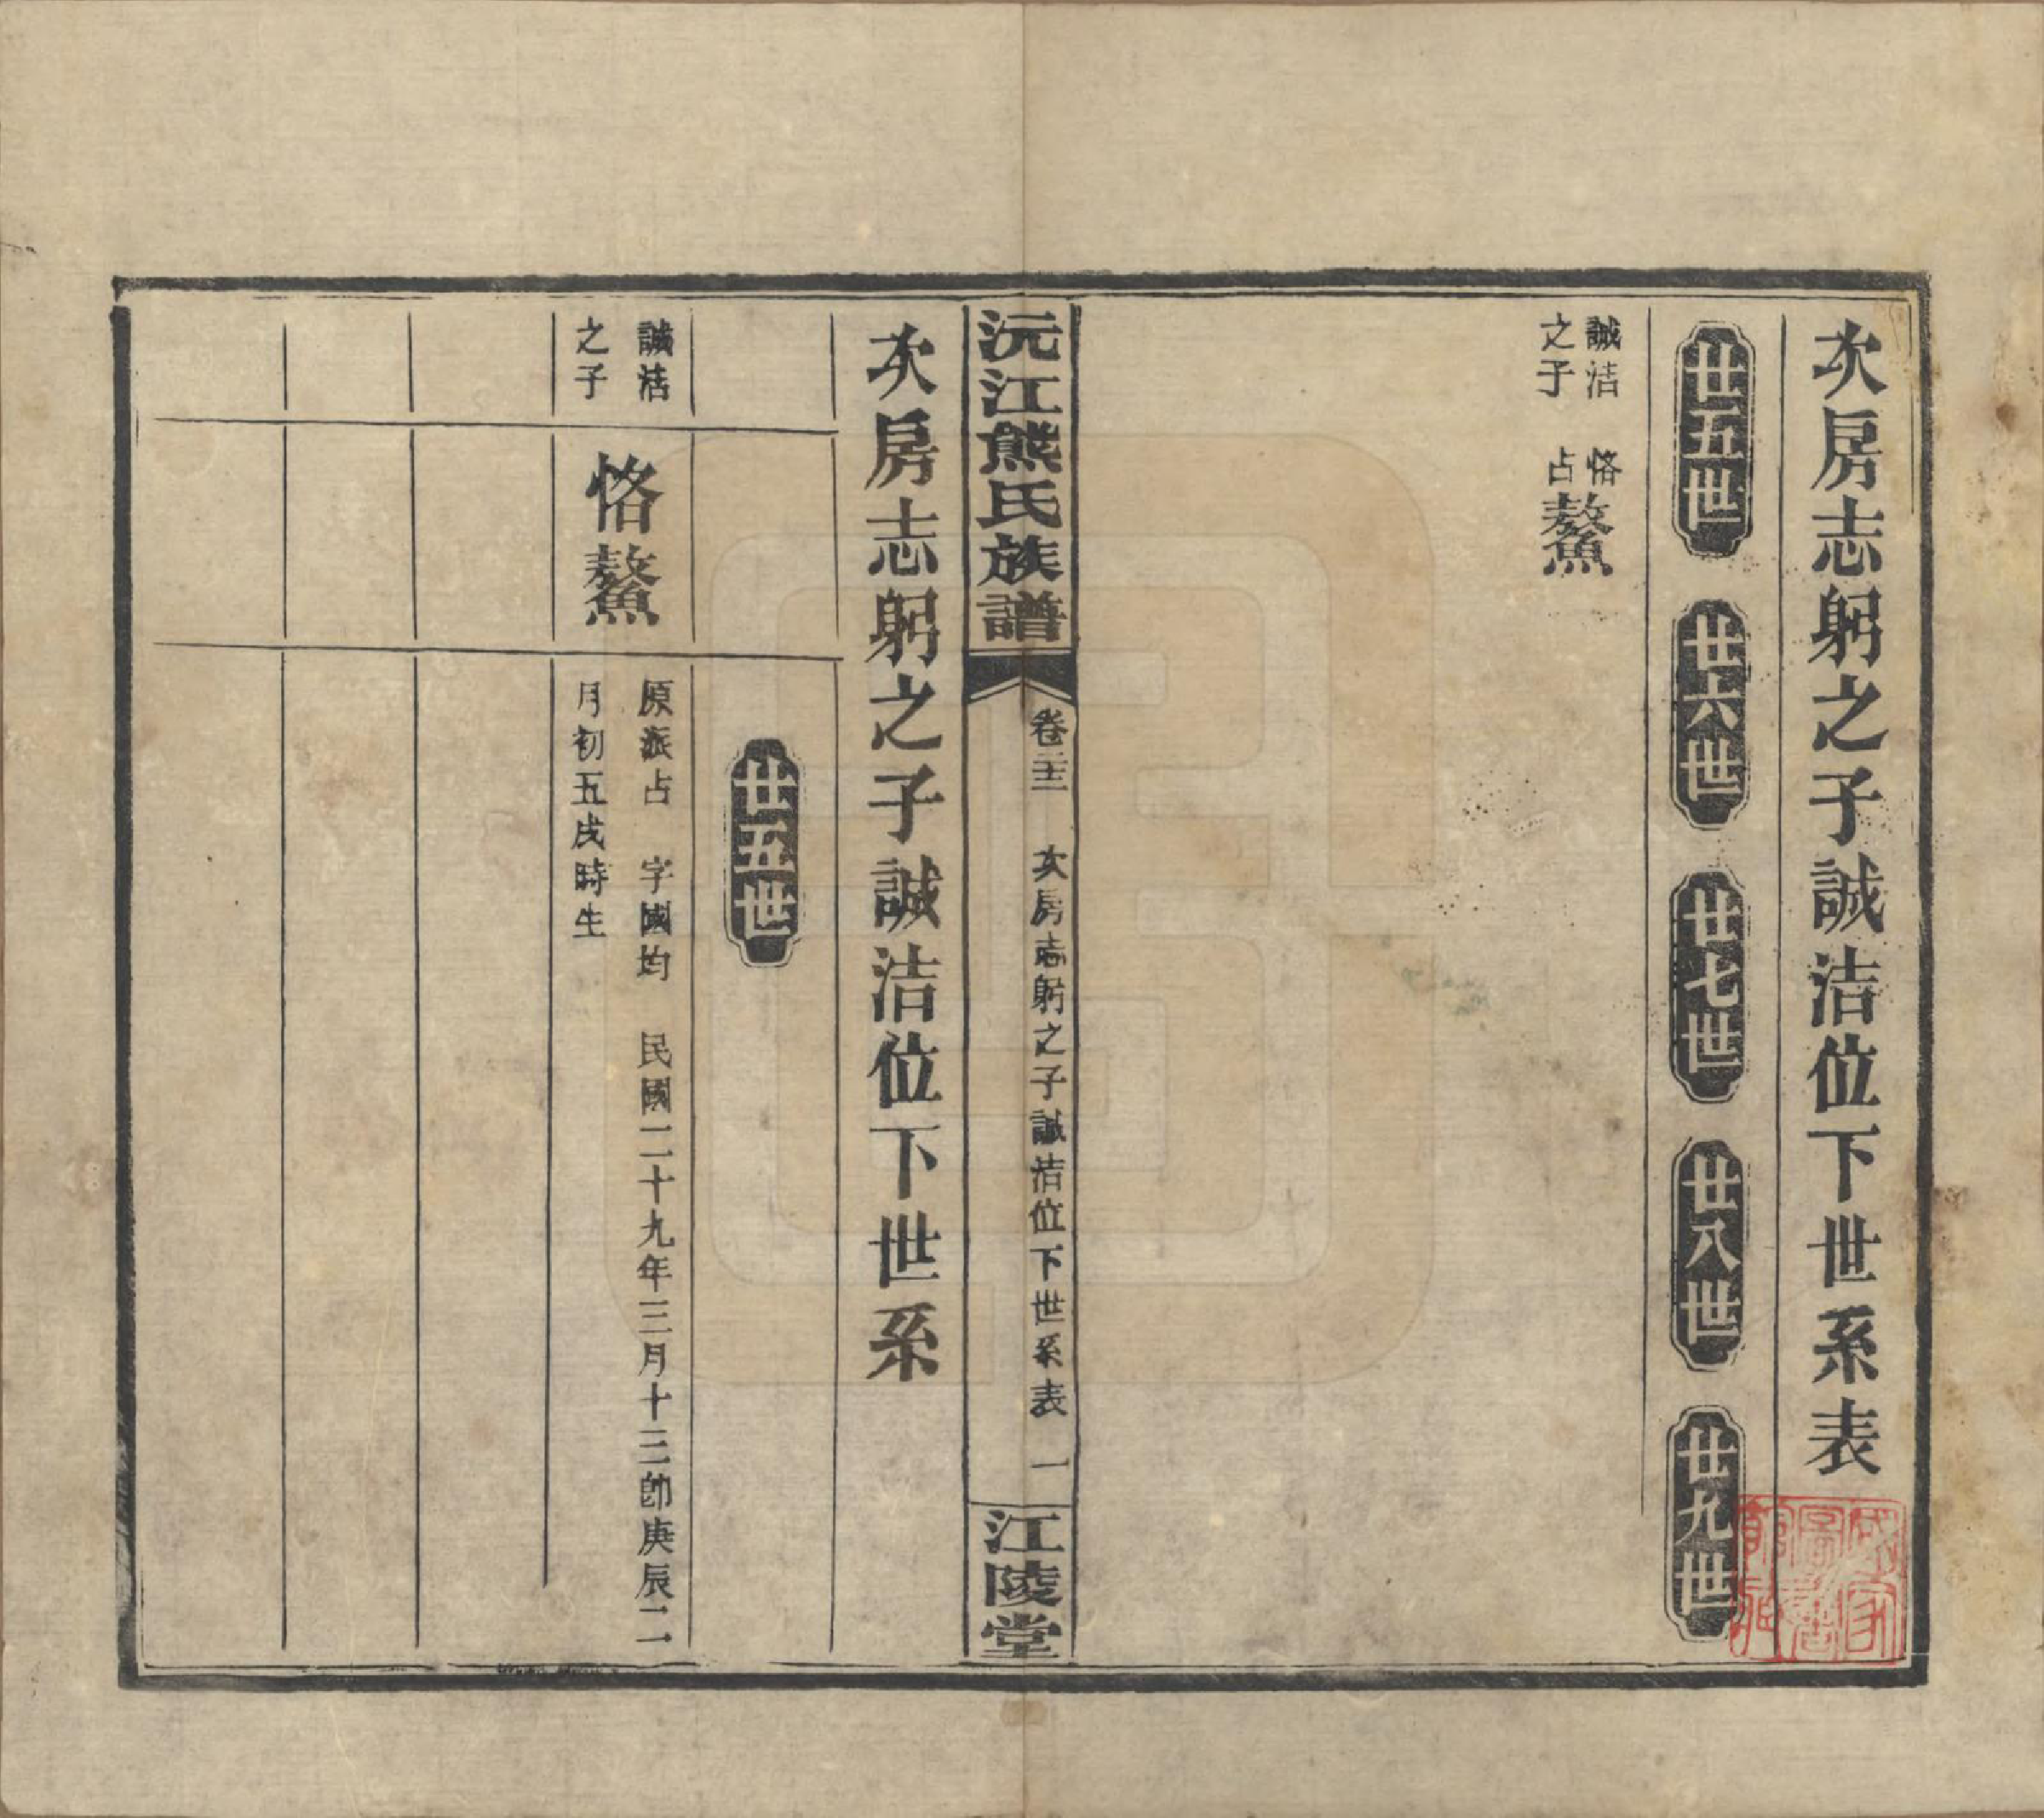 次房志躬之子誠洁位下世系表
廿五世 廿六世 廿七世 廿八世 廿九世
誠洁
之子
恪
占
鰲
沅江熊氏族譜
次房志躬之子誠洁位下世系表 一
江陵堂
次房志躬之子誠洁位下世系
廿五世
誠洁
之子
恪鰲
原派占 字國均 民國二十九年三月十三卽庚辰二
月初五戌時生
國家
圖書